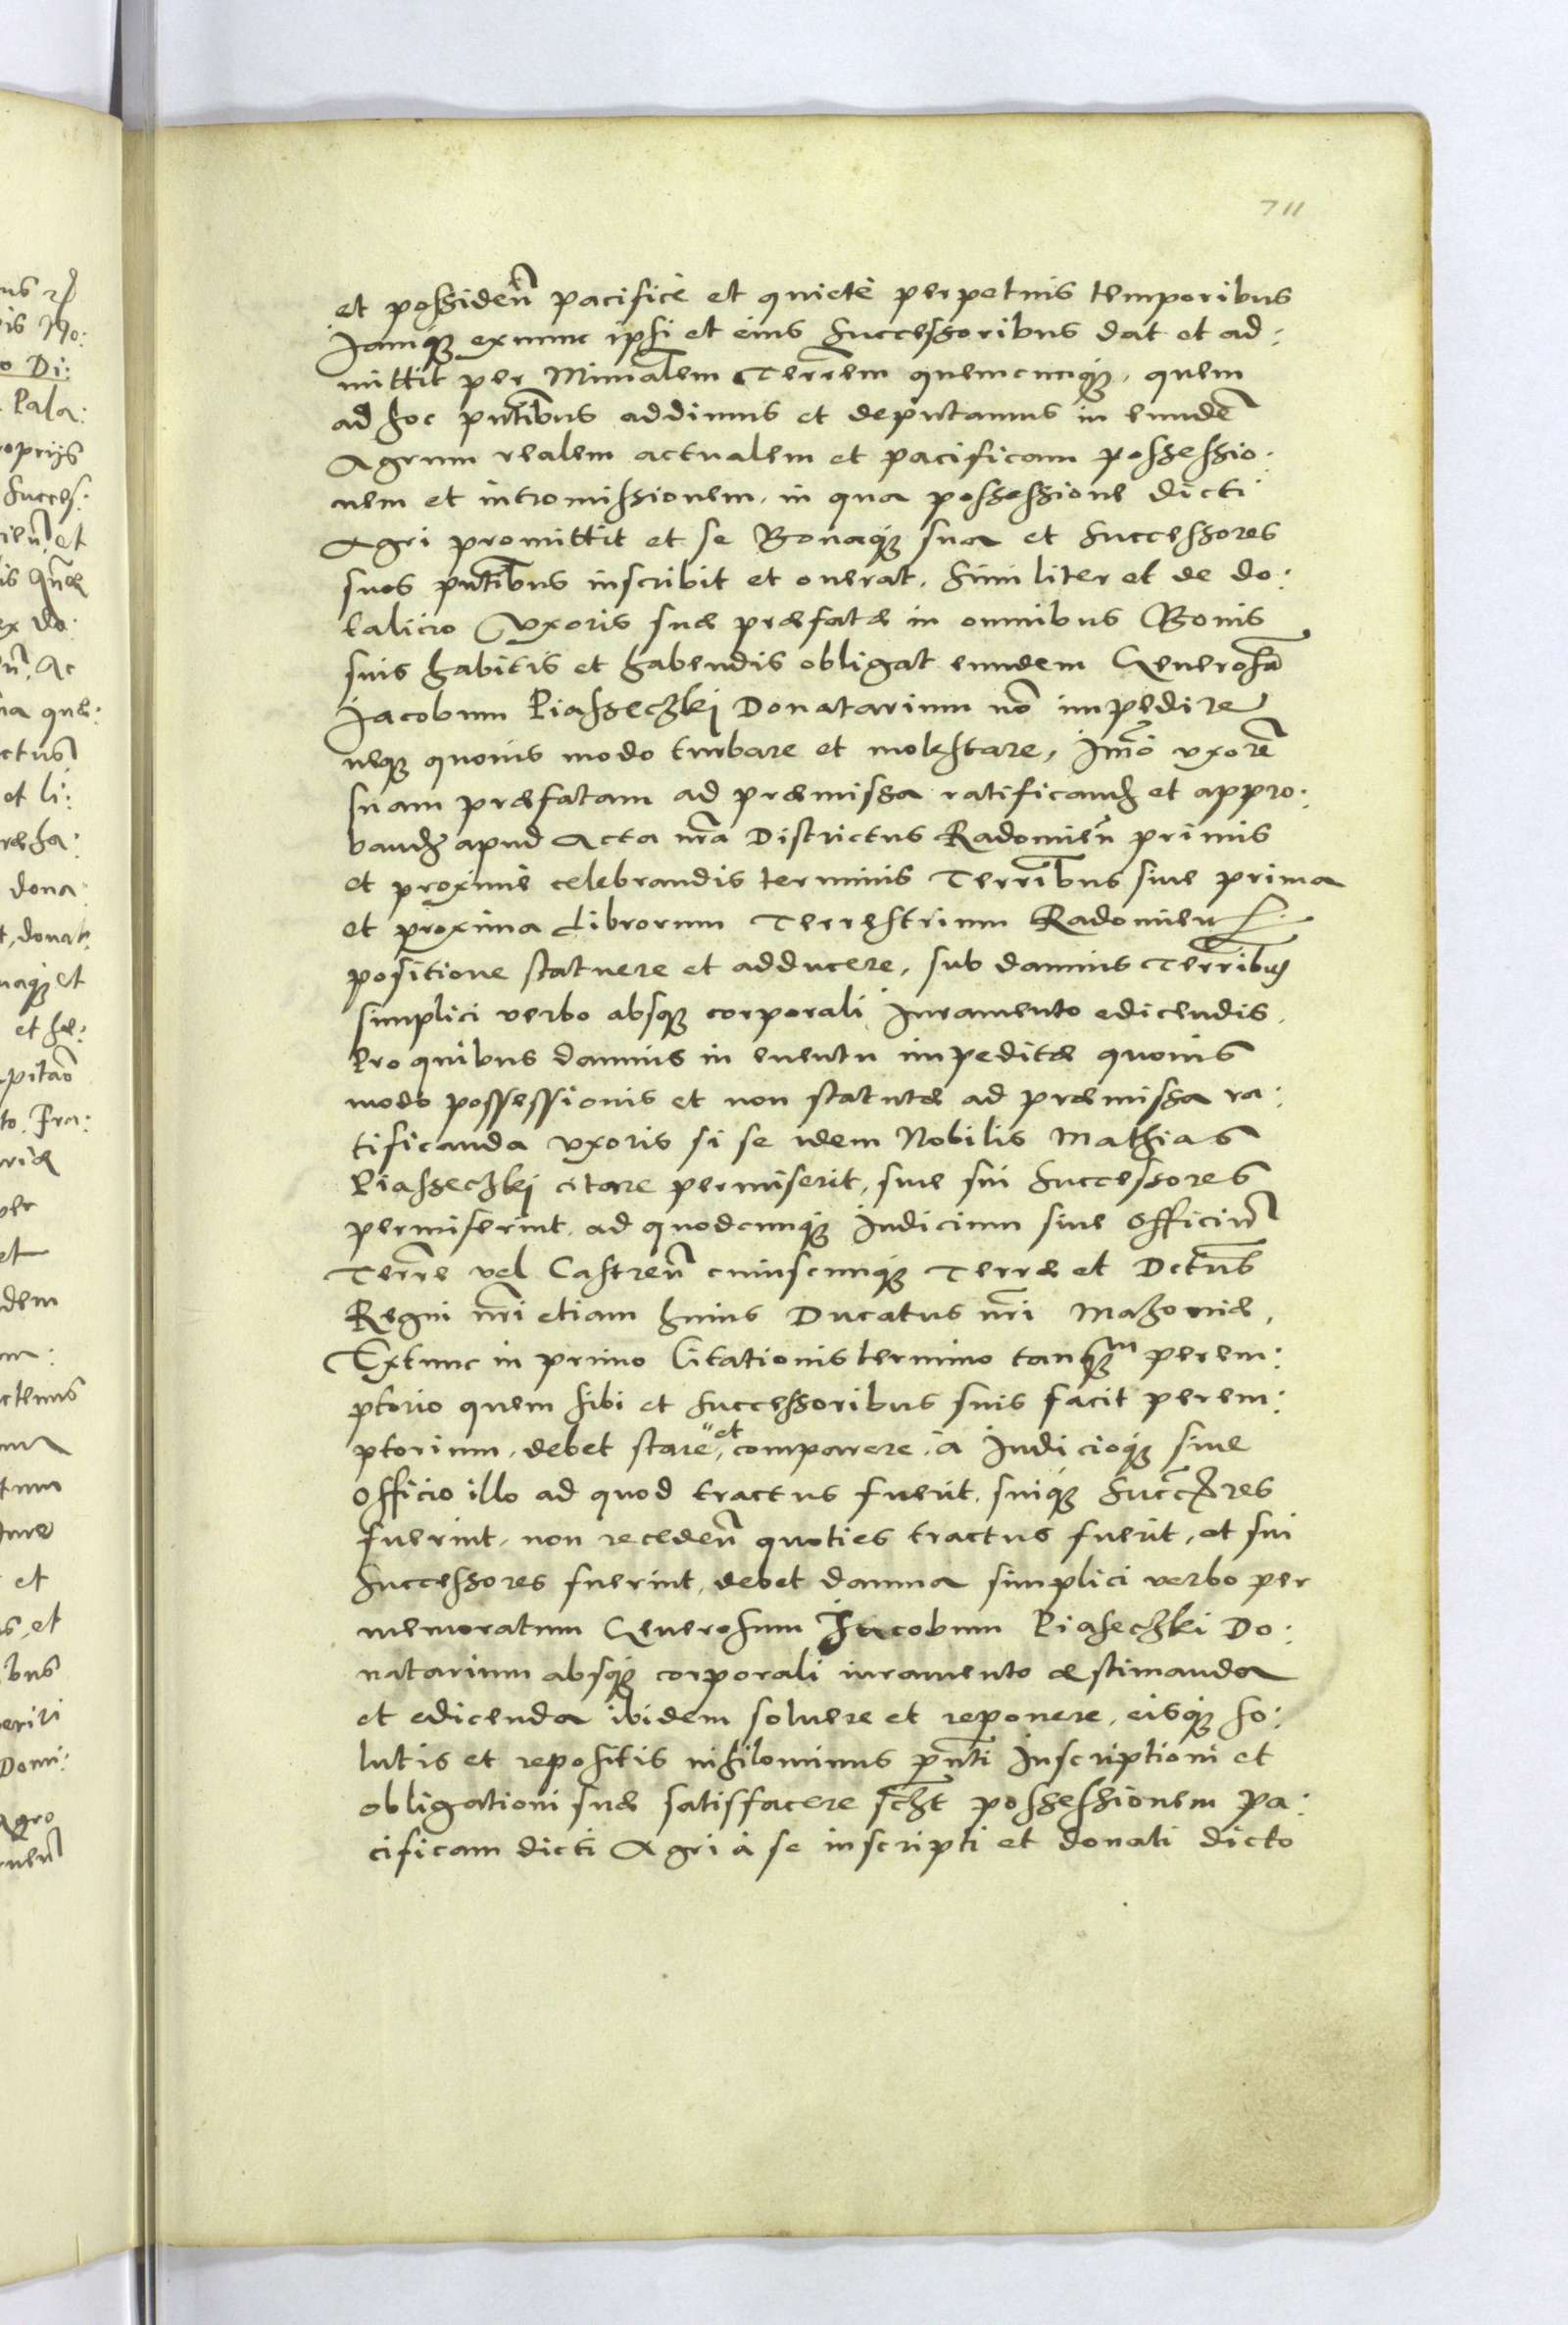 711
et possideñ pacifice et quiete perpetuis temporibus
Iamq́ꝫ exnunc ipsi et eius successoribus dat et ad:
mittit per Minãlem Terr̃em quemcunq́ꝫ, quem
ad hoc pñtibus addimus et deputamus in eundẽ
Agrum realem actualem et pacificam possessio:
nem et intromissionem, in qua possessione dicti
Agri promittit et se Bonaq́ꝫ sua et successores
suos pñtibus inscribit et onerat, similiter et de do:
talicio Vxoris suæ præfatæ in omnibus Bonis
suis habitis et habendis obligat eundem Generosũ
Jacobum Piasseczkj Donatarium nõ impedire
neqꝫ quouis modo turbare et molestare, Imõ vxorẽ
suam præfatam ad præmissa ratificandꝫ et appro:
bandꝫ apud Acta nr̃a Districtus Radomieñ primis
et proxime celebrandis terminis Terr̃ibus siue prima
et proxima Librorum Terrestrium Radomien
positione statuere et adducere, sub damnis Terr̃ibus
simplici verbo absqꝫ corporali Iuramento edicendis,
Pro quibus damnis in euentu impeditæ quouis
modo possessionis et non statutæ ad præmissa ra:
tificanda vxoris si se idem Nobilis Mathias
Piasseczkj citare permiserit, siue sui successores
permiserint, ad quodcunq́ꝫ Iudicium siue Officiũ
Terr̃e vel Castreñ cuiuscunq́ꝫ Terræ et Dctũs
Regni nr̃i etiam huius Ducatus nr̃i Mazouiæ,
Extunc in primo Citationis termino tanq̃ꝫᵐ perem:
ptorio quem sibi et successoribus suis facit perem:
ptorium, debet stare et comparere, a Iudicioq́ꝫ siue
officio illo ad quod tractus fuerit, suiq́ꝫ succ̃res
fuerint, non recedeñ quoties tractus fuerit, et sui
successores fuerint, debet damna simplici verbo per
memoratum Generosum Jacobum Piaseczki Do:
natarium absq́ꝫ corporali iuramento æstimanda
et edicenda ibidem soluere et reponere, eisq́ꝫ so:
lutis et repositis nihilominus pñti Inscriptioni et
obligationi suæ satisfacere sc̃ht possessionem pa:
cificam dicti Agri à se inscripti et donati dicto